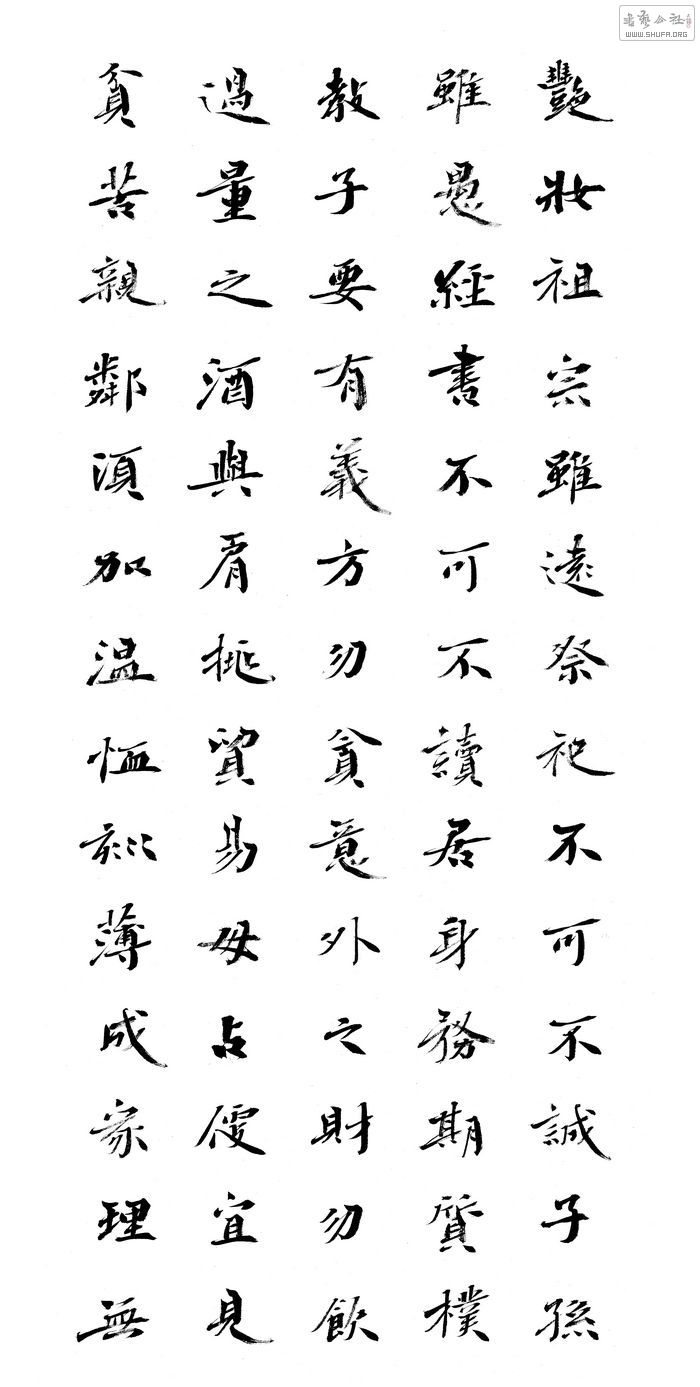 艷妝祖宗雖遠祭祀不可不誠子孫
雖愚經書不可不讀居身務期質樸
教子要有義方勿貪意外之財勿飲
過量之酒與肩挑貿易毋占便宜見
貧苦親鄰須加溫恤刻薄成家理無
書藝公社
WWW.SHUFA.ORG